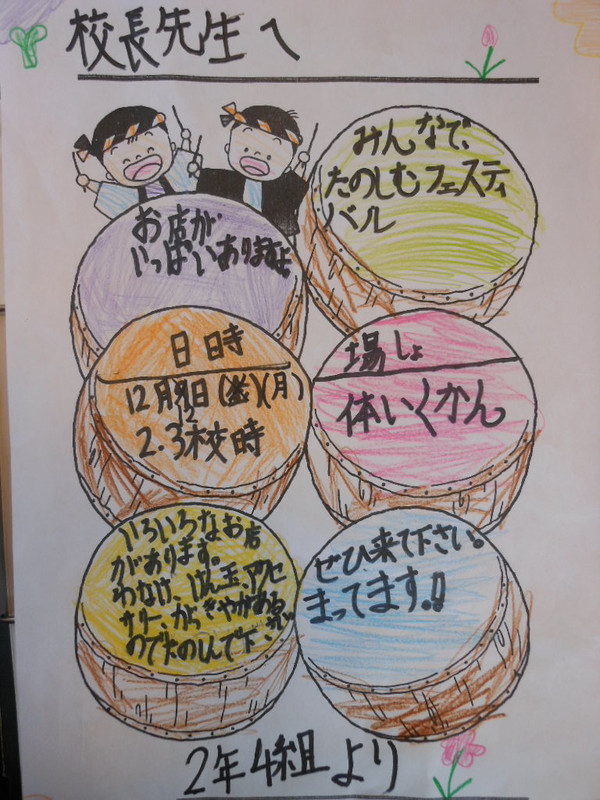 校長先生へ
みんなで、
たのしむフェスティ
バル
お店が
いっぱいありますよ
日時
12月日()(月)
13
2.3校時
場しょ
体いくかん
いろいろなお店
があります。
わなげ、けん玉、アクセ
サリー、がらきやがある
のでたのしんで下
ぜひ来て下さい。
まってます!!
2年4組より